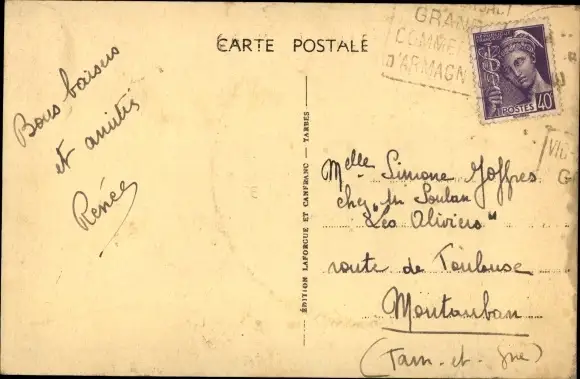 CARTE POSTALE
GRAND
COMMER
D'ARMAGN
POSTES 40
VIC
Bons baisers
et amitiés
Renée
ÉDITION LAFORGUE ET CANFRANC — TARBES
Melle Simone Joffres
chez Mr Soulan
"Léo Oliviers"
route de Toulouse
Montauban
(Tarn-et-Gne)